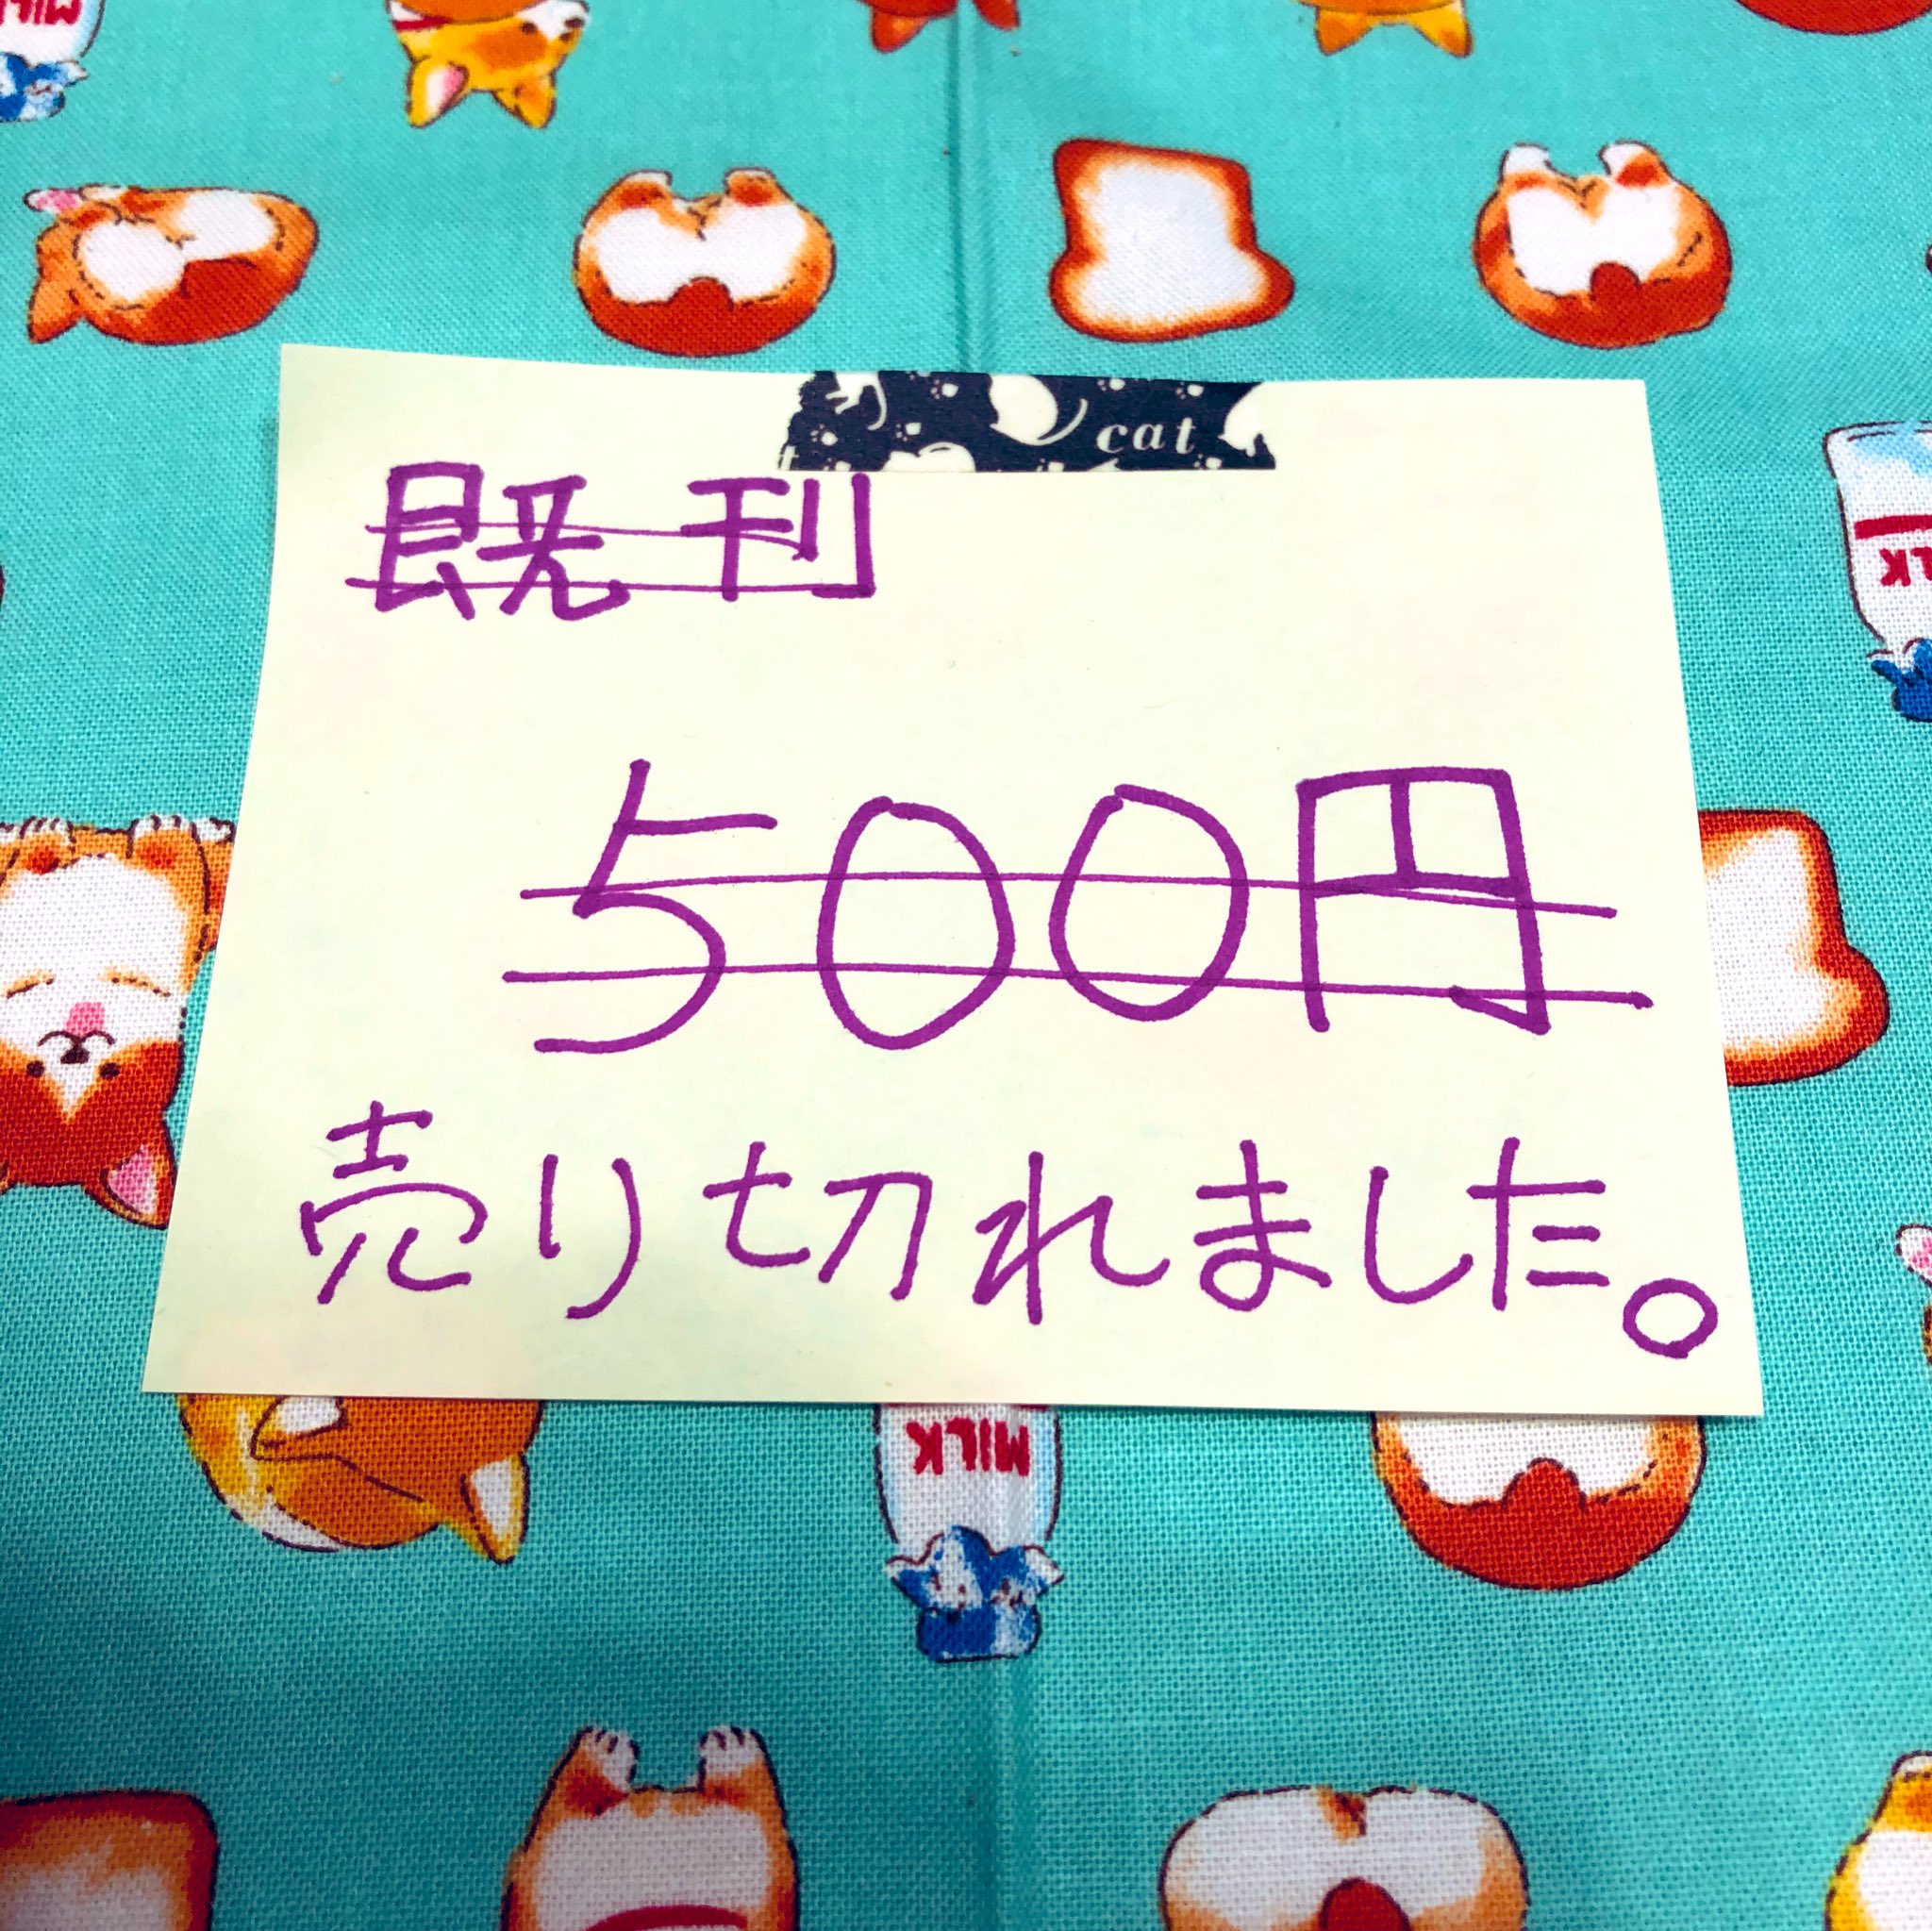 MILK
cat
既刊
500円
売り切れました。
MILK